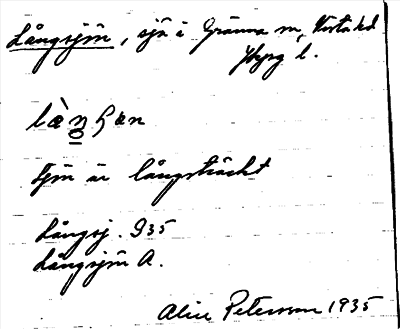 Långsjön, sjö i Gränna sn, Vista hd
Jkpg l.
Sjön är långsträckt
Långsj. G35
Långsjön A.
Alice Peterson 1935